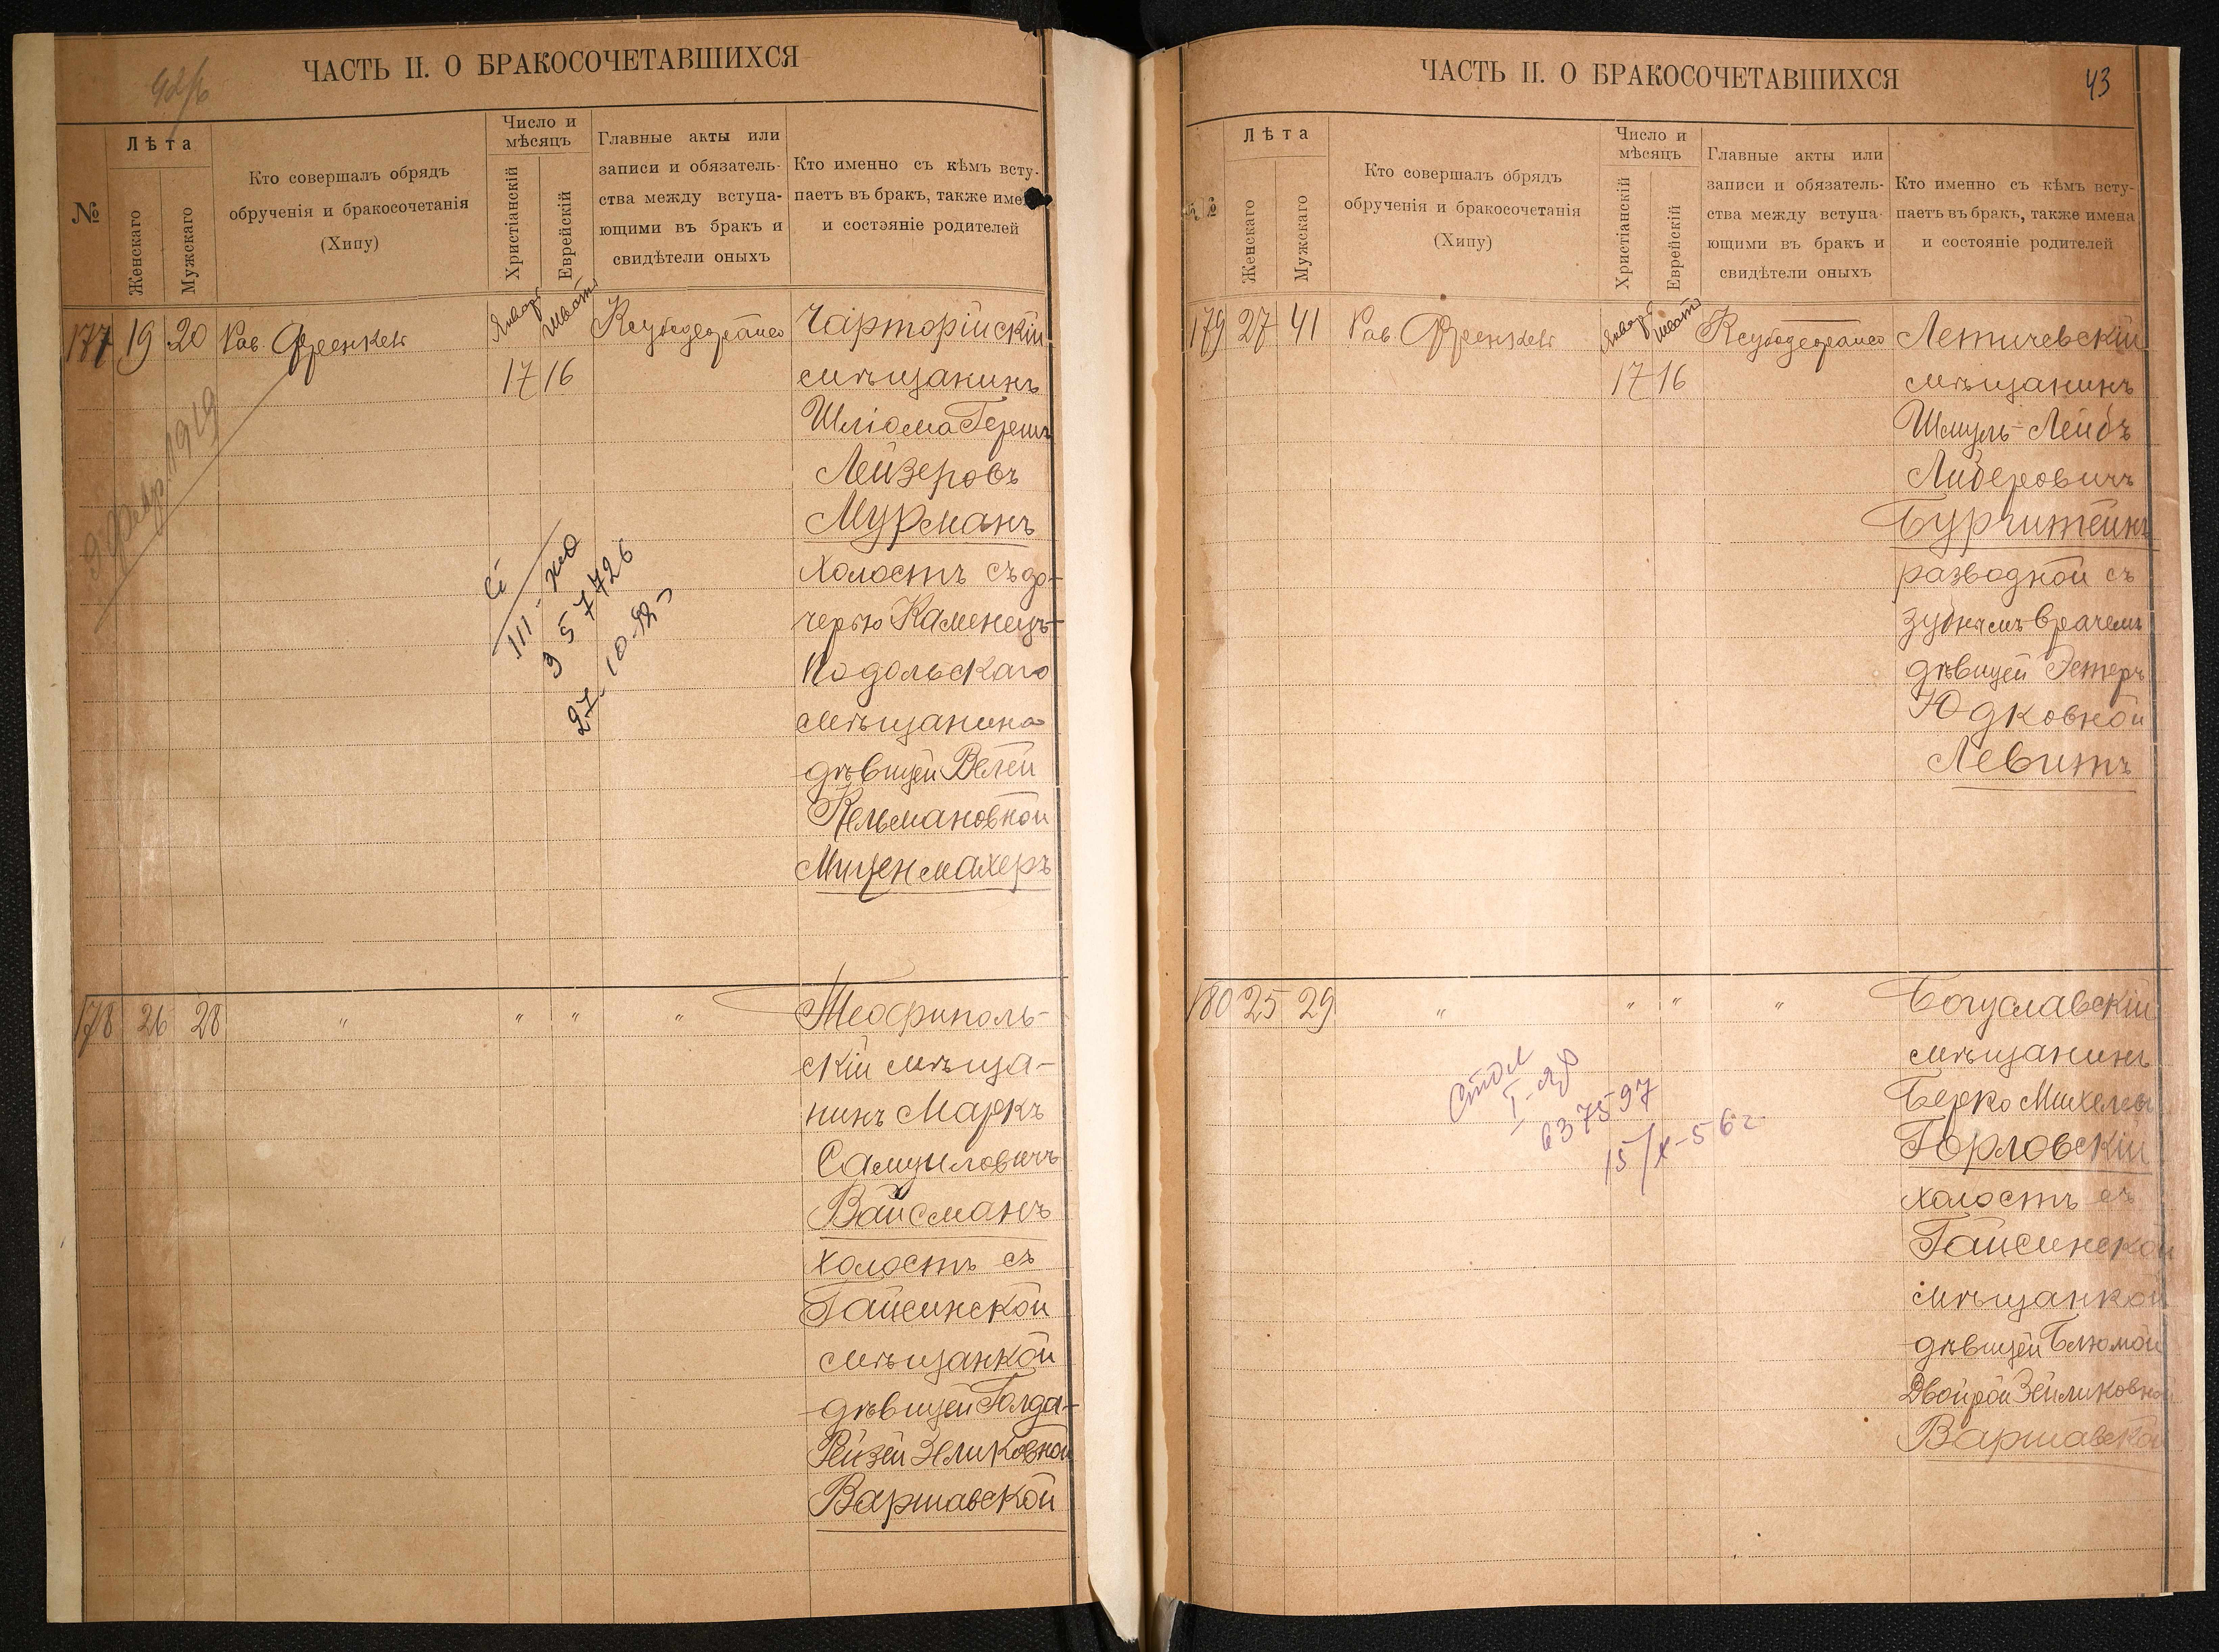 ЧАСТЬ II. О БРАКОСОЧЕТАВШИХСЯ
№
Лѣта
Женскаго
Мужскаго
Кто совершалъ обрядъ
обрученія и бракосочетанія
(Хипу)
Число и
мѣсяцъ
Христіанскій
Еврейскій
Главные акты или
записи и обязатель-
ства между вступа-
ющими въ бракъ и
свидѣтели оныхъ
Кто именно съ кѣмъ всту-
паетъ въ бракъ, также име
и состояніе родителей
177 19 20 Рав. Френкель
Январь Шватъ
17 16
Чарторійскій
мѣщанинъ
Шліома Гершъ
Лейзеровъ
Мурманъ
холостъ съ до-
черью Каменецъ-
Подольскаго
мѣщанина
дѣвицей Велей
Кельмановной
Миценмахеръ
1919
III-
957726
27-10-
178 26 28 " " " "
Теофиполь-
скій мѣща-
нинъ Маркъ
Самуиловичъ
Вайсманъ
холостъ съ
Гайсинской
мѣщанкой
дѣвицей Голда-
Рейзей Зеликовной
Варшавской
ЧАСТЬ II. О БРАКОСОЧЕТАВШИХСЯ
43
№
Лѣта
Женскаго
Мужскаго
Кто совершалъ обрядъ
обрученія и бракосочетанія
(Хипу)
Число и
мѣсяцъ
Христіанскій
Еврейскій
Главные акты или
записи и обязатель-
ства между вступа-
ющими въ бракъ и
свидѣтели оныхъ
Кто именно съ кѣмъ всту-
паетъ въ бракъ, также имена
и состояніе родителей
179 27 41 Рав. Френкель
Январь Шватъ
17 16
Летичевскій
мѣщанинъ
Шмуль-Лейбъ
Либеровичъ
Бурштейнъ
разводной съ
зубнымъ врачемъ
дѣвицей Эстеръ
Юдковной
Левитъ
180 25 29 " " " "
Богуславскій
мѣщанинъ
Берко Михелевъ
Горловскій
холостъ съ
Гайсинской
мѣщанкой
дѣвицей Блюмой
Двойрой Зейликовной
Варшавской
637597
15/X-56 г.